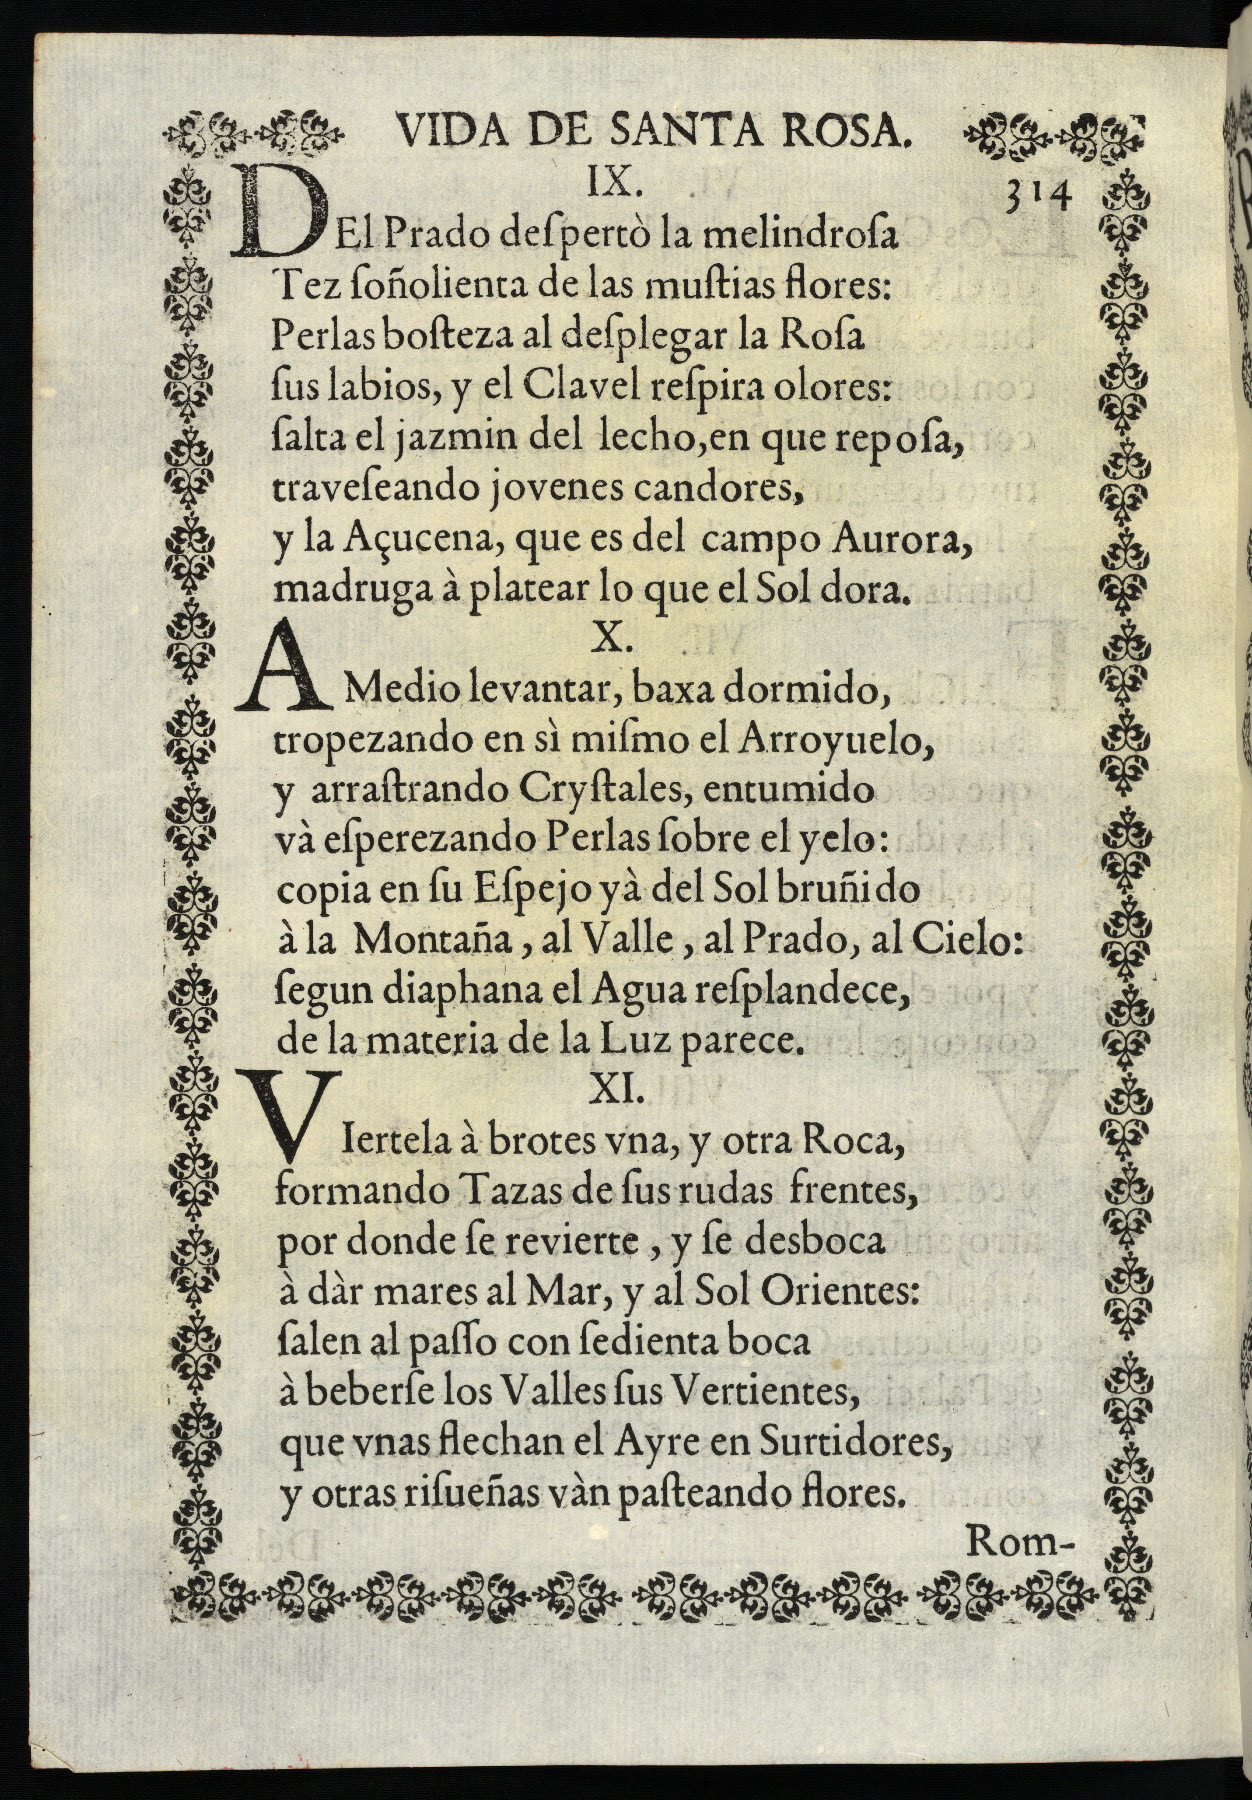 VIDA DE SANTA ROSA.
IX.
314
DEl Prado deſpertò la melindroſa
Tez ſoñolienta de las muſtias flores:
Perlas boſteza al deſplegar la Roſa
ſus labios, y el Clavel reſpira olores:
ſalta el jazmin del lecho,en que repoſa,
traveſeando jovenes candores,
y la Açucena, que es del campo Aurora,
madruga à platear lo que el Sol dora.
X.
A Medio levantar, baxa dormido,
tropezando en sì miſmo el Arroyuelo,
y arraſtrando Cryſtales, entumido
và eſperezando Perlas ſobre el yelo:
copia en ſu Eſpejo yà del Sol bruñido
à la Montaña, al Valle, al Prado, al Cielo:
ſegun diaphana el Agua reſplandece,
de la materia de la Luz parece.
XI.
VIertela à brotes vna, y otra Roca,
formando Tazas de ſus rudas frentes,
por donde ſe revierte, y ſe desboca
à dàr mares al Mar, y al Sol Orientes:
ſalen al paſſo con ſedienta boca
à beberſe los Valles ſus Vertientes,
que vnas flechan el Ayre en Surtidores,
y otras riſueñas vàn paſteando flores.
Rom-